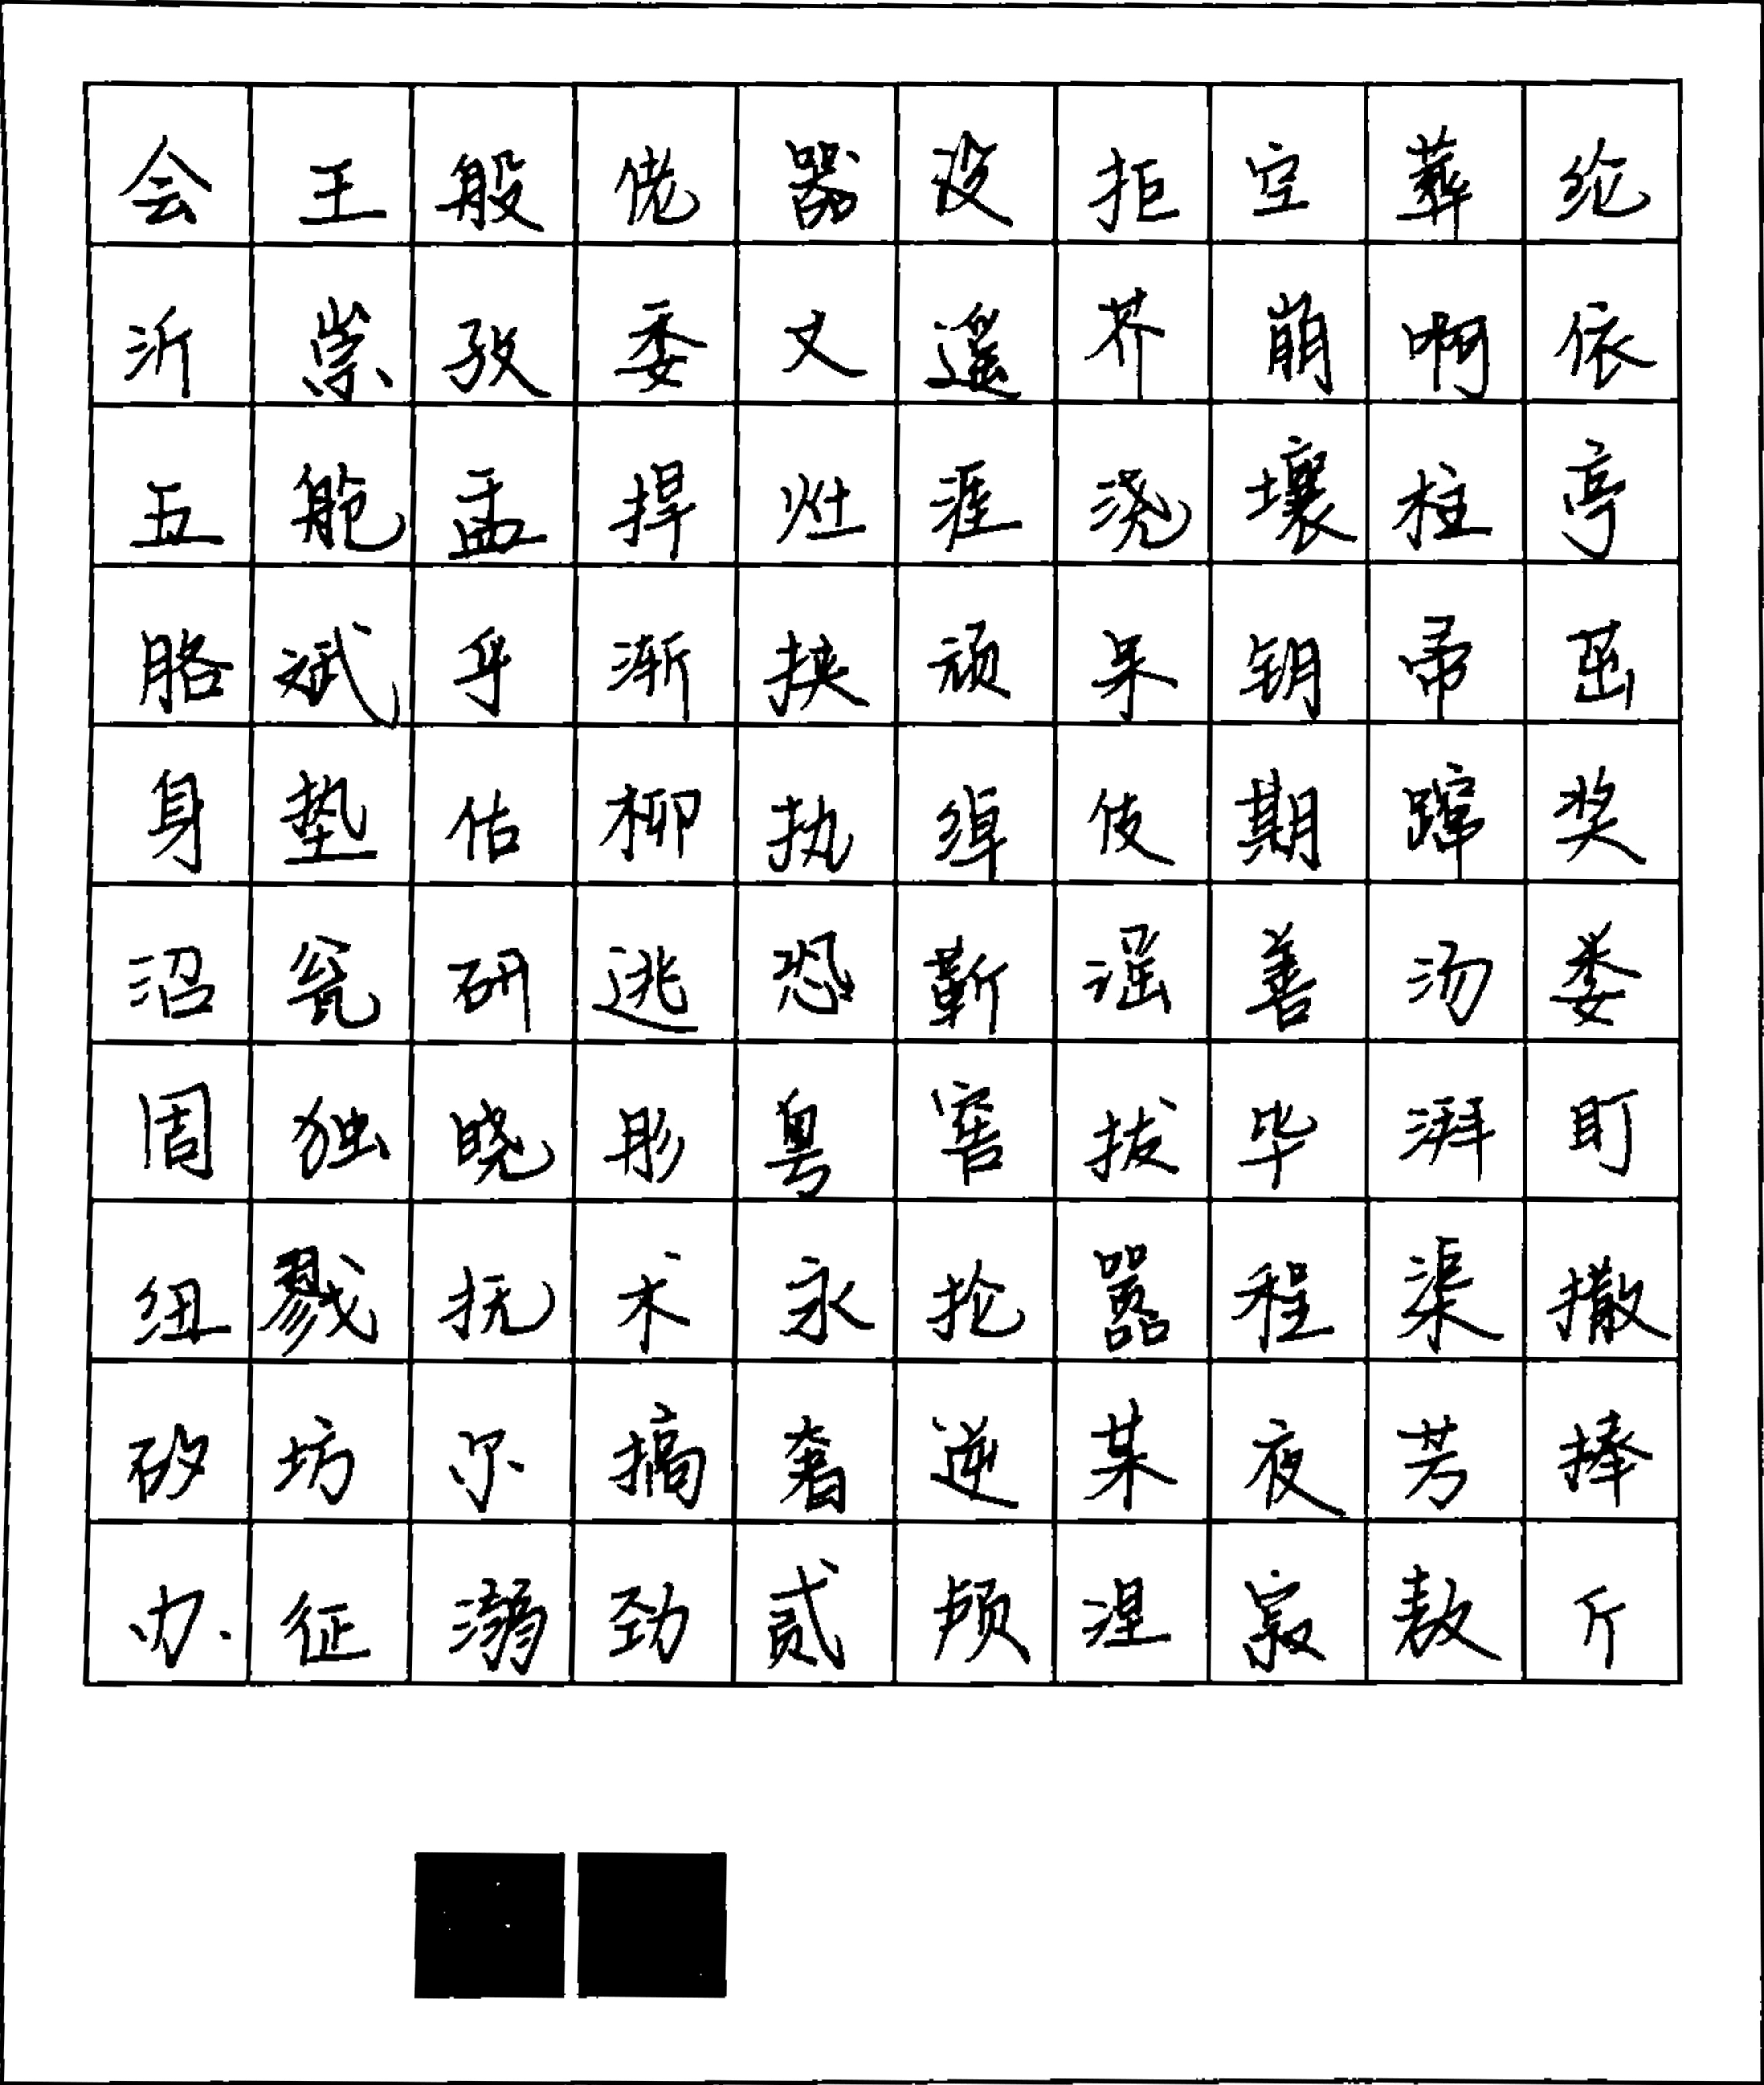 会王般佬器设拒空葬纶
沂崇孜委又遥芥崩啊依
五舱盂捍灶涯浇壤柱亭
胳斌乎渐挟顽呆钥帚茁
身垫估柳执绰伎期蹿奖
沼瓮研逃恐靳谣善汤娄
周独晓彤粤窖拔毕湃盯
纽戮抚术永抡嚣程渠撤
矽坊尔搞奢逆某夜芳捧
办征溺劲贰颅涅寂敖斤